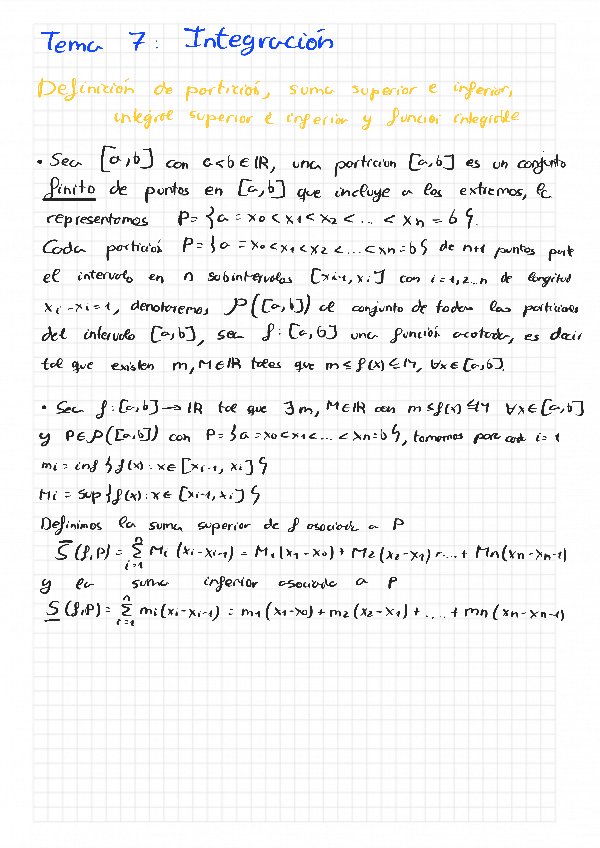 Tema 7: Integración
Definición de partición, suma superior e inferior,
integral superior e inferior y función integrable
• Sea [a,b] con a<b∈IR, una particion [a,b] es un conjunto
finito de puntos en [a,b] que incluye a los extremos, lo
representamos P={a=x0<x1<x2<...<xn=b}.
Cada partición P={a=x0<x1<x2<...<xn=b} de n+1 puntos parte
el intervalo en n subintervalos [xi-1,xi] con i=1,2...n de longitud
xi-xi=1, denotaremos P([a,b]) al conjunto de todas las particiones
del intervalo [a,b], sea f:[a,b] una función acotada, es decir
tal que existen m,M∈IR tales que m≤f(x)≤M, ∀x∈[a,b].
• Sea f:[a,b]→IR tal que ∃m,M∈IR con m≤f(x)≤M ∀x∈[a,b]
y P∈P([a,b]) con P={a=x0<x1<...<xn=b}, tomamos para cada i=1
mi=inf{f(x):x∈[xi-1,xi]}
Mi=sup{f(x):x∈[xi-1,xi]}
Definimos la suma superior de f asociada a P
S̅(f,P)=∑ⁿᵢ₌₁ Mi(xi-xi-1)=M1(x1-x0)+M2(x2-x1)+...+Mn(xn-xn-1)
y la suma inferior asociada a P
S̲(f,P)=∑ⁿᵢ₌₁ mi(xi-xi-1)=m1(x1-x0)+m2(x2-x1)+....+mn(xn-xn-1)